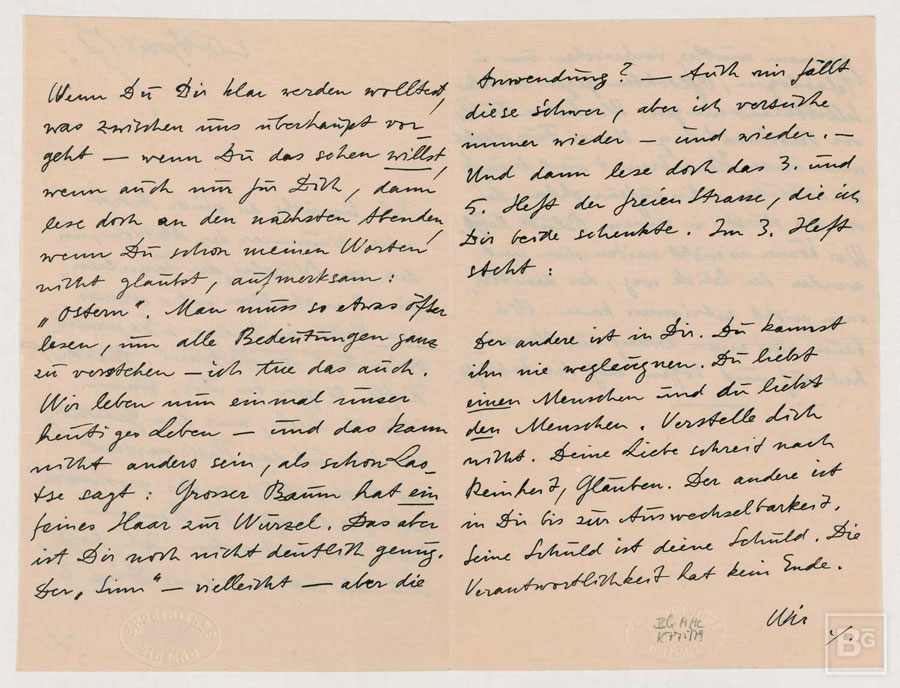 Wenn Du Dir klar werden wolltest,
was zwischen uns überhaupt vor-
geht — wenn Du das sehen willst,
wenn auch nur für Dich, dann
lese doch an den nächsten Abenden,
wenn Du schon meinen Worten
nicht glaubst, aufmerksam:
„Ostern“. Man muss so etwas öfter
lesen, um alle Bedeutungen ganz
zu verstehen — ich tue das auch.
Wir leben nun einmal unser
heutiges Leben — und das kann
nicht anders sein, als schon Lao-
tse sagt: Grosser Baum hat ein
feines Haar zur Wurzel. Das aber
ist Dir noch nicht deutlich genug.
Der „Sinn“ — vielleicht — aber die
Anwendung? — Auch mir fällt
diese schwer, aber ich versuche
immer wieder — und wieder. —
Und dann lese doch das 3. und
5. Heft der freien Strasse, die ich
Dir beide schenkte. Im 3. Heft
steht:
Der andere ist in Dir. Du kannst
ihn nie wegleugnen. Du liebst
einen Menschen und du liebst
den Menschen. Verstelle dich
nicht. Deine Liebe schreit nach
Reinheit, Glauben. Der andere ist
in Dir bis zur Auswechselbarkeit.
Seine Schuld ist deine Schuld. Die
Verantwortlichkeit hat kein Ende.
Wir ./.
BG